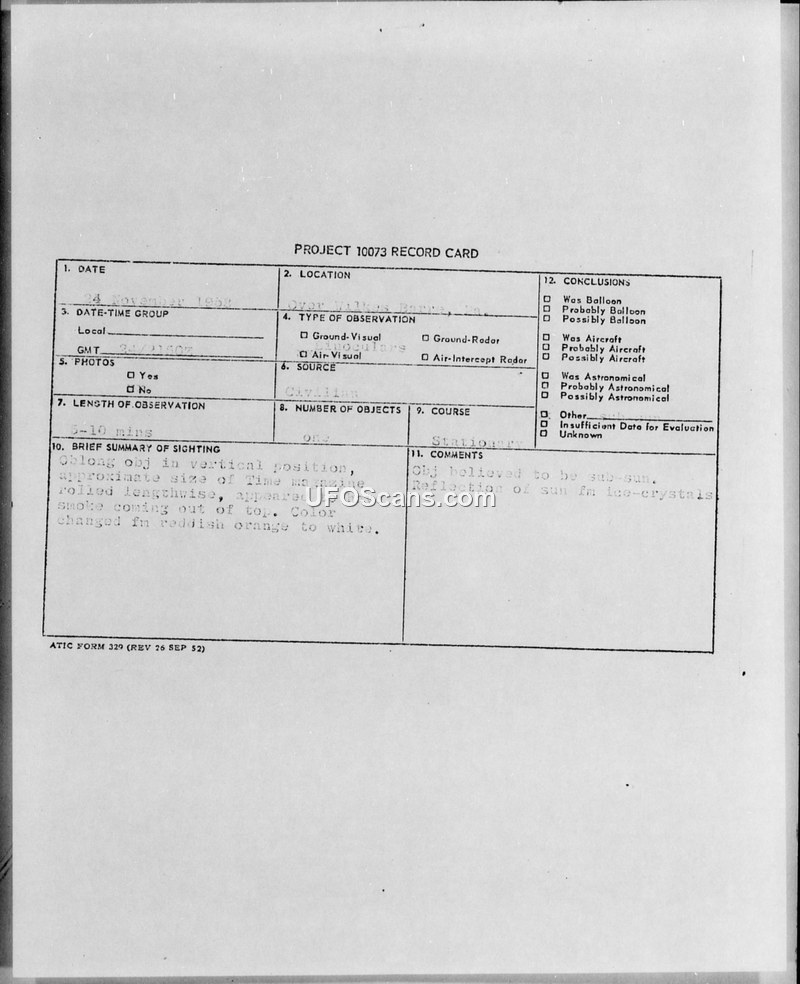 PROJECT 10073 RECORD CARD
1. DATE
24 November 1952
2. LOCATION
Over Wilkes Barre, Pa.
12. CONCLUSIONS
Was Balloon
Probably Balloon
Possibly Balloon
Was Aircraft
Probably Aircraft
Possibly Aircraft
Was Astronomical
Probably Astronomical
Possibly Astronomical
Other
Insufficient Data for Evaluation
Unknown
3. DATE-TIME GROUP
Local
GMT
4. TYPE OF OBSERVATION
Ground-Visual
Ground-Radar
Binoculars
Air-Visual
Air-Intercept Radar
5. PHOTOS
Yes
No
6. SOURCE
Civilian
7. LENGTH OF OBSERVATION
5-10 mins
8. NUMBER OF OBJECTS
one
9. COURSE
Stationary
10. BRIEF SUMMARY OF SIGHTING
Oblong obj in vertical position,
approximate size of Time magazine
rolled lengthwise, appeared
smoke coming out of top. Color
changed fm reddish orange to white.
11. COMMENTS
Obj believed to be sub-sun.
Reflection of sun fm ice-crystals
UFOScans.com
ATIC FORM 329 (REV 26 SEP 52)